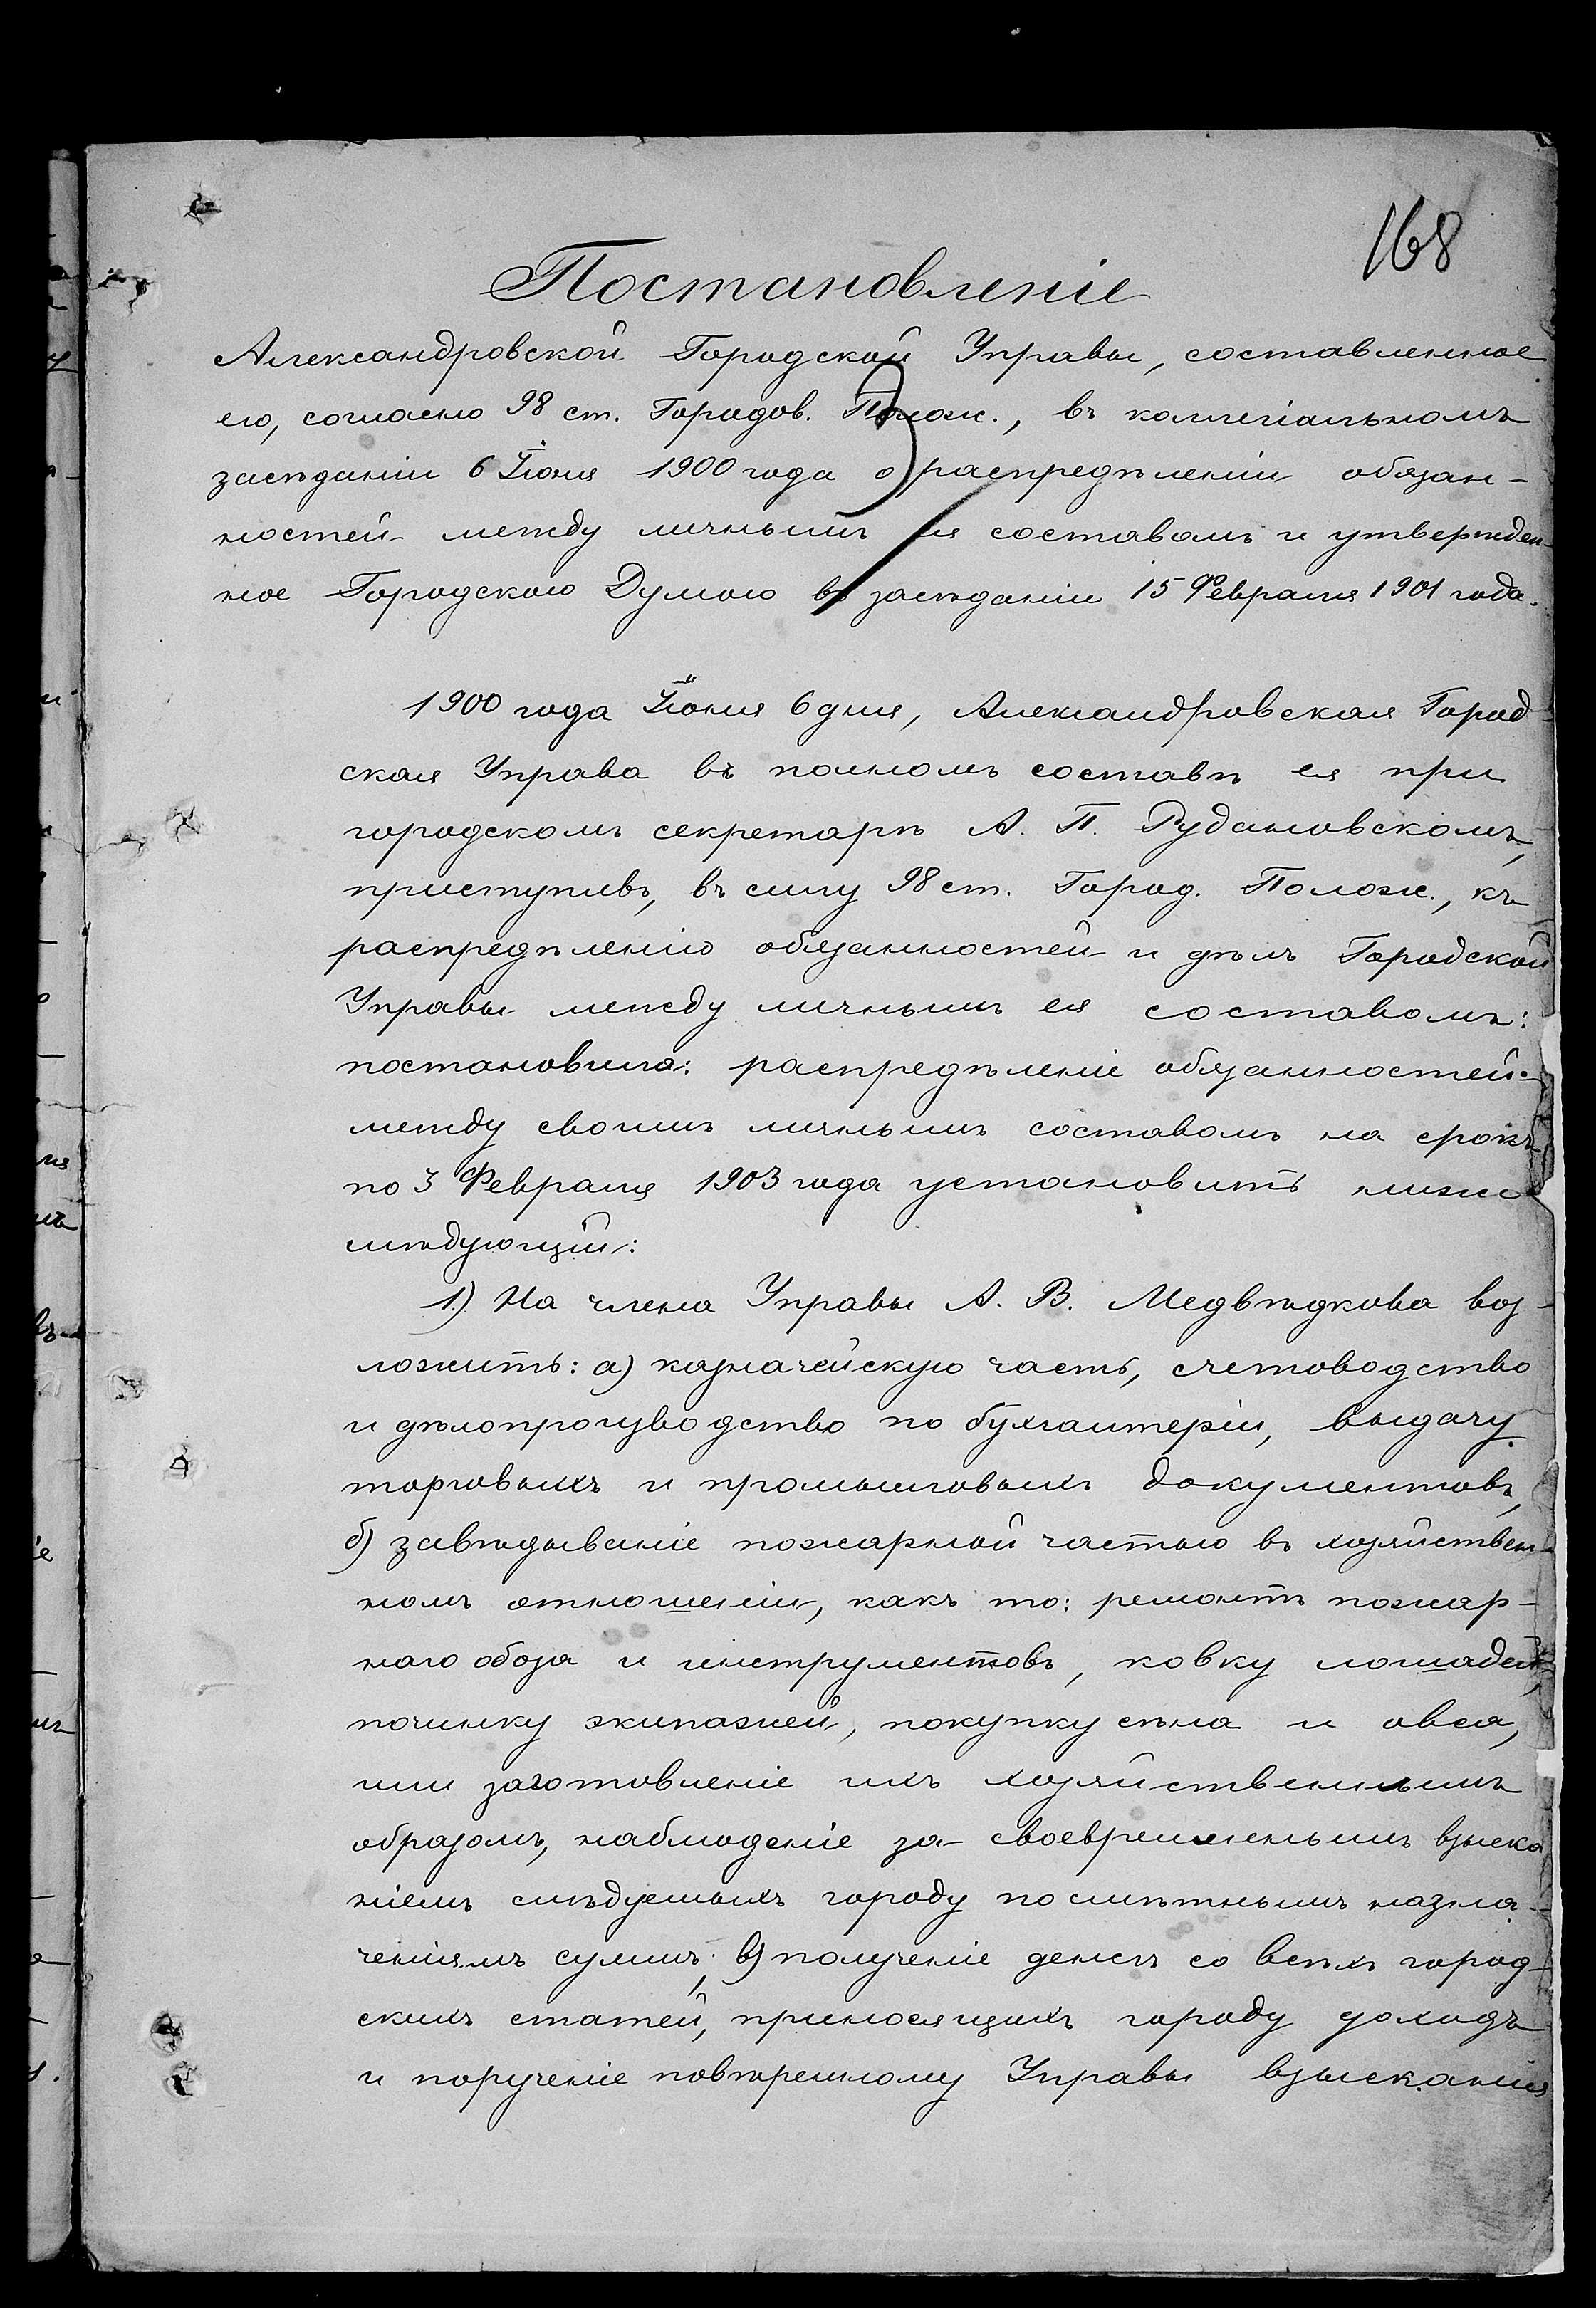 168
Постановленіе
Александровской Городской Управы, составленное
ею, согласно 98 ст. Городов. Полож., въ коллегіальномъ
засѣданіи 6 Іюня 1900 года о распредѣленіи обязан-
ностей между личнымъ ея составомъ и утвержден-
ное Городскою Думою въ засѣданіи 15 Февраля 1901 года.
1900 года Іюня 6 дня, Александровская Город-
ская Управа въ полномъ составѣ ея при
городскомъ секретарѣ А. П. Рудановскомъ,
приступивъ, въ силу 98 ст. Город. Полож., къ
распредѣленію обязанностей и дѣлъ Городской
Управы между личнымъ ея составомъ:
постановила: распредѣленіе обязанностей
между своимъ личнымъ составомъ на срокъ
по 3 Февраля 1903 года установить ниже
слѣдующій:
1.) На члена Управы А. В. Медвѣдкова воз-
ложить: а) казначейскую часть, счетоводство
и дѣлопроизводство по бухгалтеріи, выдачу
торговыхъ и промысловыхъ документовъ,
б) завѣдываніе пожарной частью въ хозяйствен-
номъ отношеніи, какъ то: ремонтъ пожар-
наго обоза и инструментовъ, ковку лошадей,
починку экипажей, покупку сѣна и овса,
или заготовленіе ихъ хозяйственнымъ
образомъ, наблюденіе за своевременнымъ взыска
ніемъ слѣдуемыхъ городу по смѣтнымъ назна-
ченіямъ суммъ; в) полученіе денегъ со всѣхъ город-
скихъ статей, приносящихъ городу доходъ
и порученіе повѣренному Управы взысканія